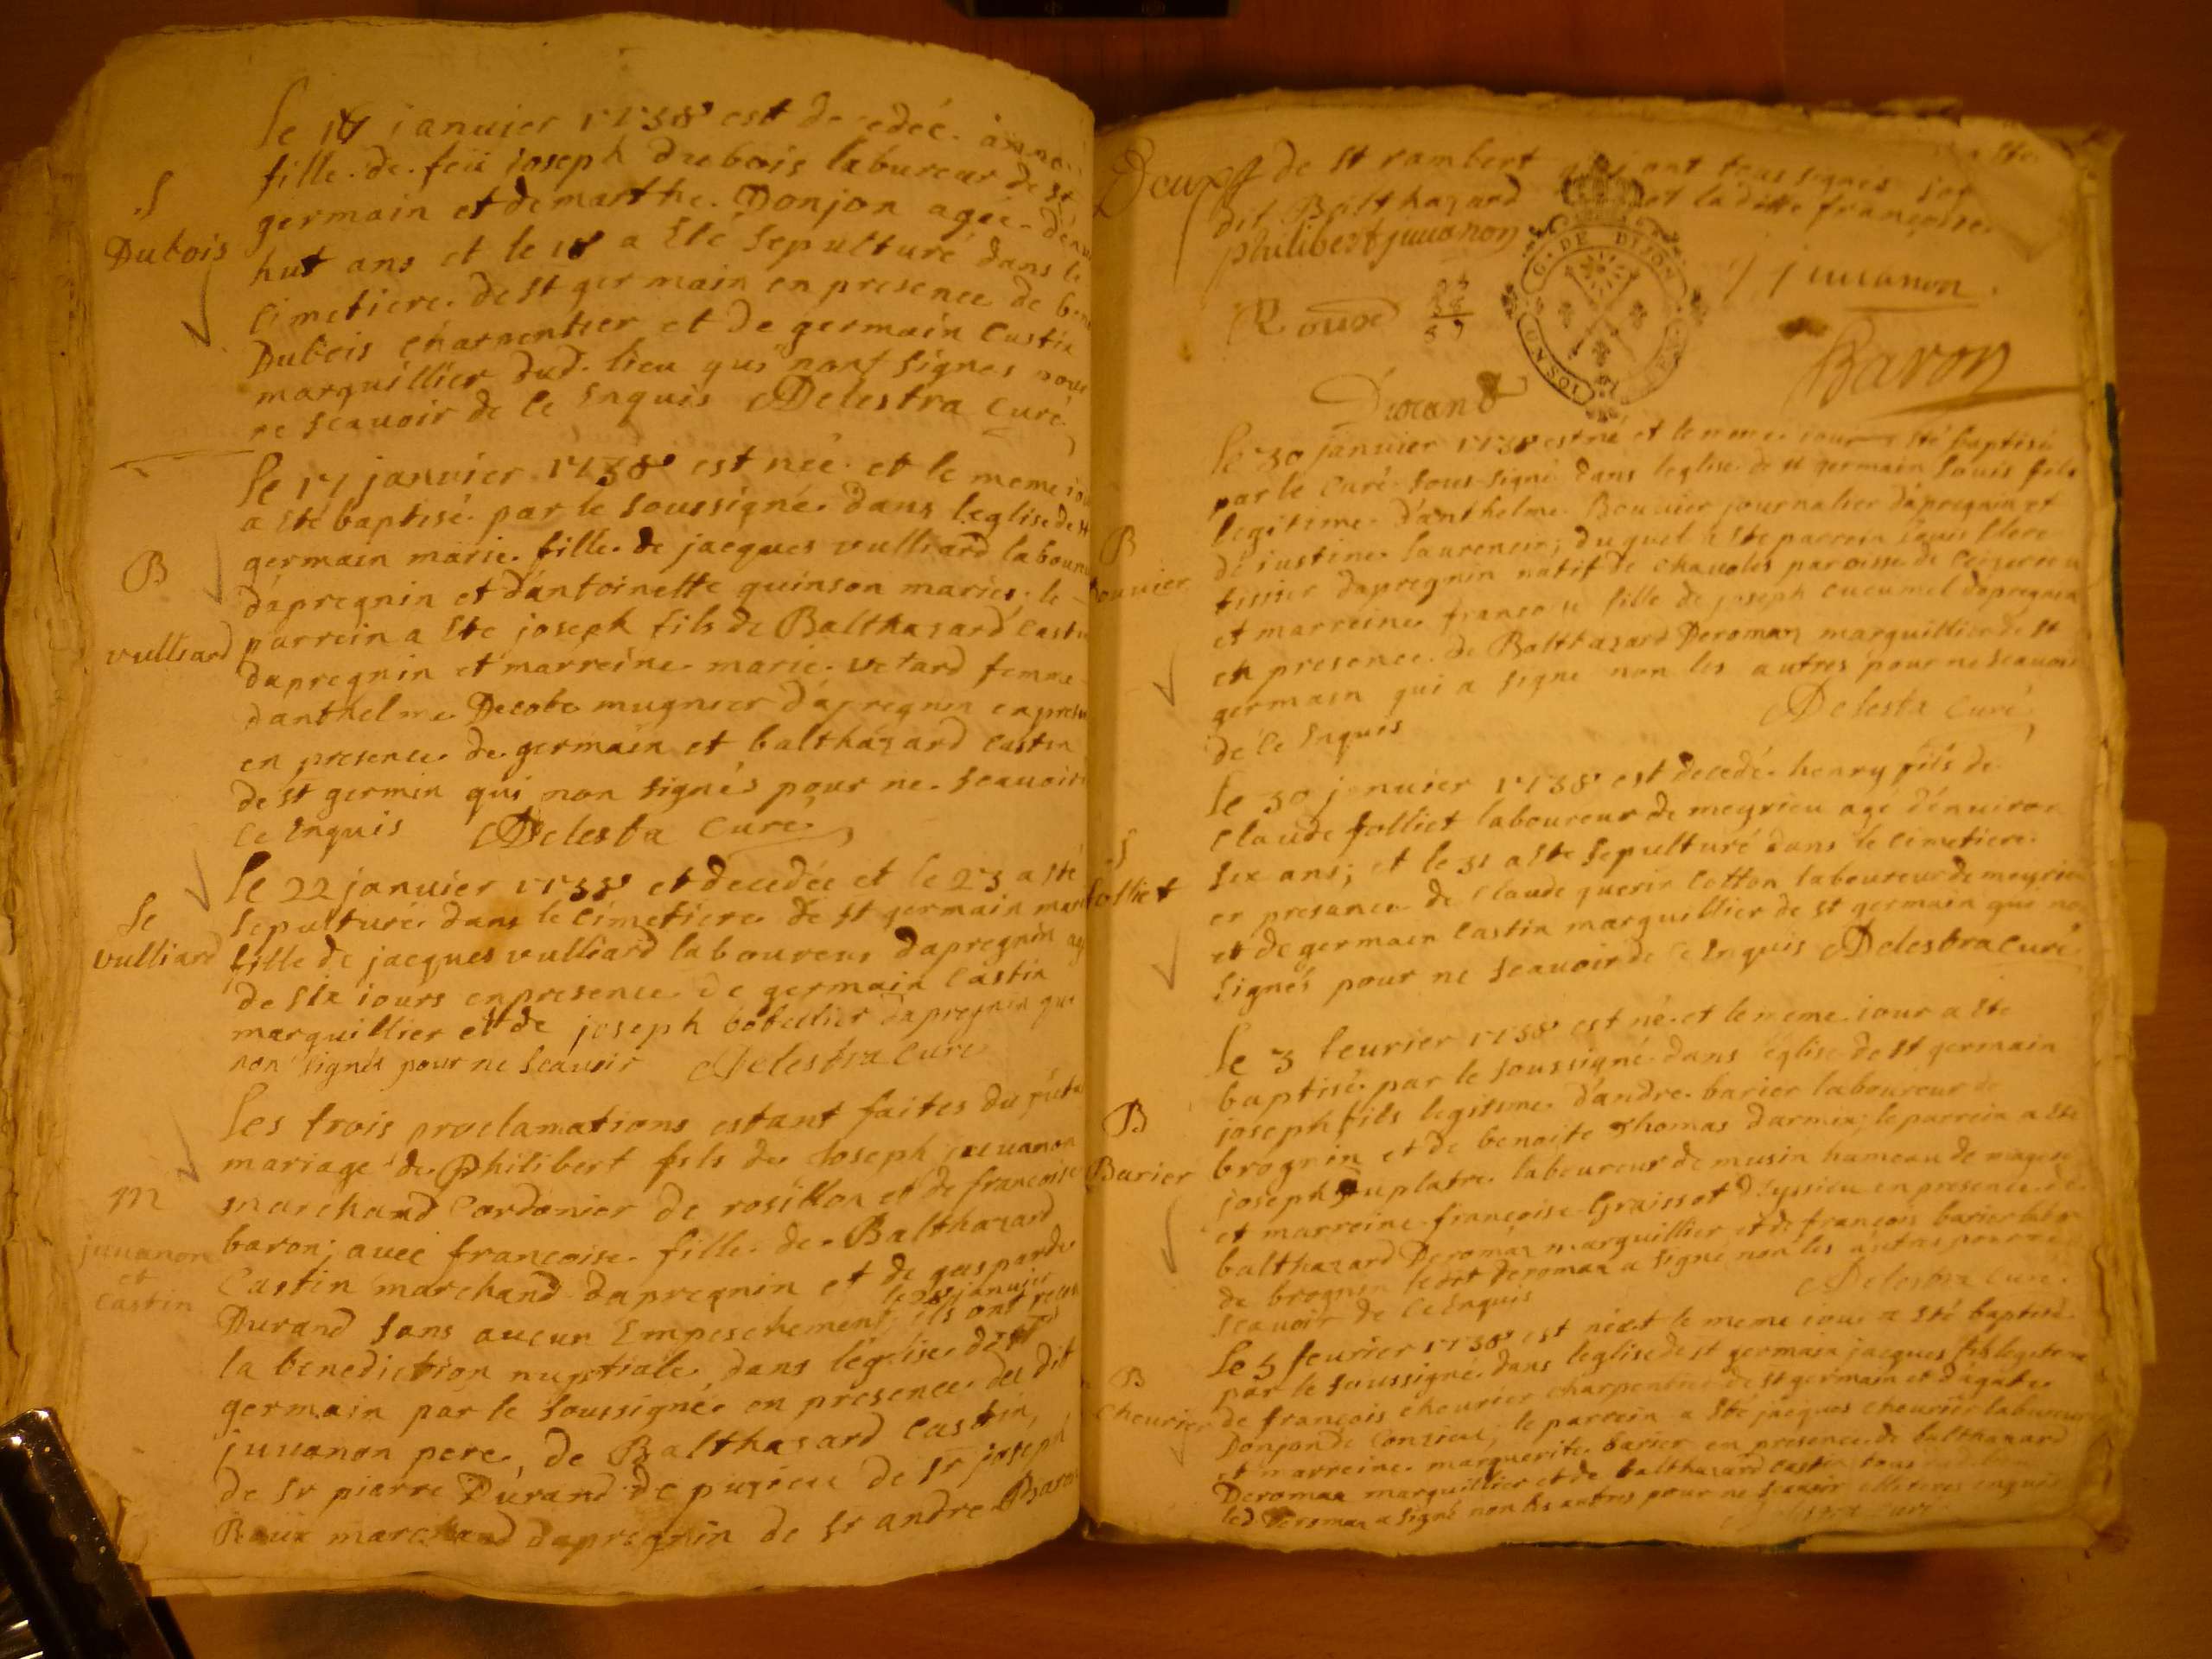 S
Dubois
le 17 januier 1738 est decedeé anne
fille de feü ioseph dubois labureur de st
germain et de marthe Donjon ageé denui
hut ans et le 18 a Eté sepulturé dans le
cimetiere de st germain en presence de
Dubois charpentier et de germain Castin
marquillier dud. lieu qui nont signes pour
ne scauoir de ce Enquis Delestra curé
B
vulliard
le 17 janvier 1738 est neé et le meme io
a Ete baptisé par le soussigné dans leglise de st
germain marie fille de jacques vulliard labour
dapregnin et dantoinette quinson mariés; le
parrein a Ete joseph fils de Balthasard Castin
dapregnin et marreine marie vetard femme
danthelme Decobe mugnier dapregnin en prese
en presence de germain et balthazard castin
de st germin qui non signés pour ne scauoir
ce Enquis Delestra curé
Se
vulliard
le 22 januier 1738 et decedeé et le 23 a Eté
sepulturé dans le cimetiere de st germain mar
fille de jacques vulliard laboureur dapregnin ag
de six iours en presence de germain Castin
marquillier et de joseph bobillier dapregnin qui
non signés pour ne scauoir Delestra curé
M
juuanon
et
castin
les trois proclamations estant faites du futur
mariage de Philibert fils de Joseph juuanon
marchand Cordonier de rosillon et de francoise
baron; avec francoise fille de Balthazard
Castin marchand dapregnin et de gasparde
le 28 januier
Durand sans aucun Empeschement, ils ont receu
la benediction nuptiale dans léglise de st
germain par le soussigné en presence du dit
juuanon pere, de Balthasard Castin,
de sr pierre Durand de pugieu de sr joseph
Roux marchand dapregnin de sr andre Baron
Deux de st rambert qui ont tous signés
dit Balthazard et la ditte francoise
philibert juuanon
G. DE DIJON
UN SOL
J juuanon
Roux
Baron
Durand
B
Bouuier
le 30 januier 1738 est né et le meme iour a Eté baptisé
par le Curé sous-signé dans leglise de st germain louis fils
legitime danthelme Bouuier journalier dapregnin et
de iustine laurencin; duquel a Ete parrein louis
tissier dapregnin natif de chauoles paroisse de Ceizerieu
et marreine francoise fille de joseph cucumel dapregnin
en presence de Balthazard Deromaz marquillier de st
germain qui a signé non les autres pour ne scauoir
de ce Enquis Delestra Curé
S
folliet
le 30 januier 1738 est decedé henry fils de
Claude folliet laboureur de meyrieu agé dénuiron
six ans; et le 31 a Ete sepulturé dans le cimetiere
en presance de Claude querin Cotton laboureur de meyrieu
et de germain Castin marquillier de st germain qui no
signés pour ne scauoir de ce Enquis Delestra Curé
B
Barier
le 3 feurier 1738 est né et le meme iour a Ete
baptisé par le soussigné dans eglise de st germain
joseph fils legitime dandre barier laboureur de
brognin et de benoite Thomas darmix; le parrein a Ete
joseph Duplatre laboureur de musin hameau de
et marreine francoise Graissot deyssieu en presence de
balthazard Deromaz marquillier et de francois barier
de brognin ledit deromaz a signé non les autres pour ne
scauoir de ce Enquis Delestra curé
B
cheurier
le 5 feurier 1738 est né et le meme iour a Eté baptisé
par le soussigné dans leglise de st germain jacques fils legitime
de francois cheurier charpentier de st germain et dagate
Donjon de Conzieu; le parrein a Eté jacques cheurier laboureur
et marreine marguerite barier en presence de balthazard
Deromaz marquillier et de balthazard castin
led Deromaz a signé non les autres pour ne scauoir enquis
Delestra curé